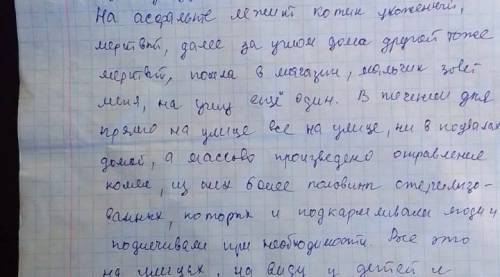 На асфальте лежит котик ухоженый,
мертвый, далее за углом дома другой тоже
мертвый, пошла в магазин, мальчик зовет
меня, на улиц ещё один. В течении дня
прямо на улице все на улице, ни в подвалах
домой, а массово произведено отравление
кошек, из них более половины стерилизо-
ванных, которых и подкармливали люди и
подлечивали при необходимости. Все это
на улицах, на виду у детей и